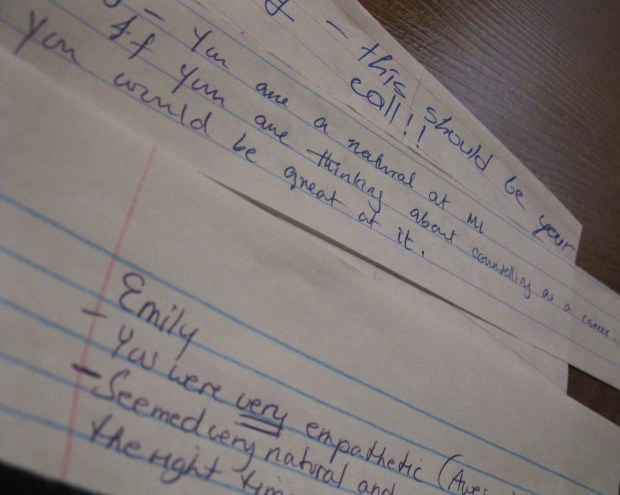 – this should be your
call!!
– You are a natural at MI
If you are thinking about counselling as a career
you would be great at it.
Emily
– You were very empathetic
– Seemed very natural and
the right